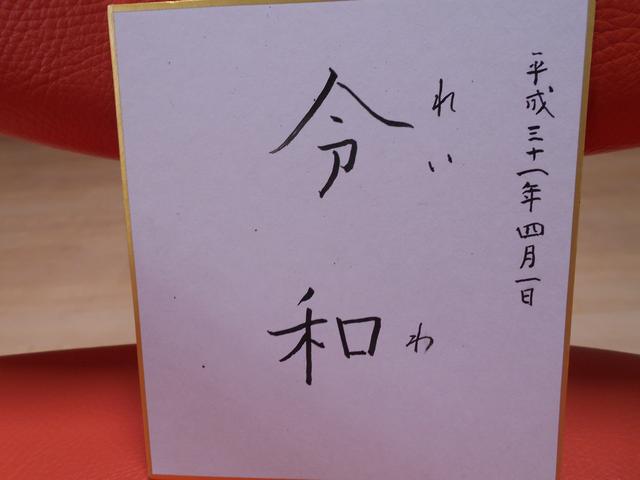 平成三十一年四月一日
令和
れいわ